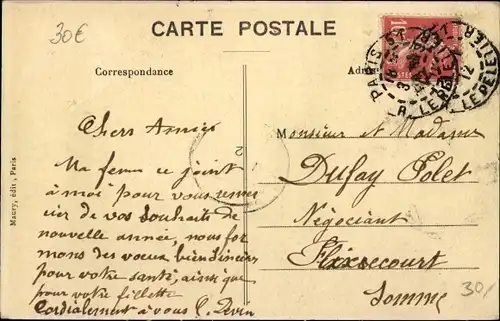 30€
CARTE POSTALE
Correspondance
PARIS
R. LE PELETIER
12
Chers Amis
Ma femme ce joint
à moi pour vous remer
cier de vos souhaits de
nouvelle année, nous for
mons des vœux bien sincères
pour votre santé, ainsi que
pour votre fillette
Cordialement à vous
Monsieur et Madame
Dufay Polet
Négociant
Flixecourt
Somme
30/
2
Maury, édit., Paris